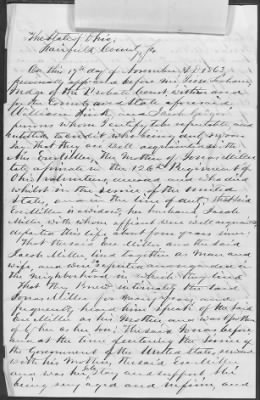 The State of Ohio,
Fairfield County, ss
On this 17th day of November A.D. 1863
personally appeared before me
Judge of the Probate Court within and
for the County and State aforesaid,
William Fink and Jacob
persons whom I certify to be respectable and
entitled to credit who being duly sworn
say that they are well acquainted with
Mrs Eve Miller, the Mother of Jonas Miller
late a private in the 126th Regiment of
Ohio Volunteers, deceased and who died
whilst in the service of the United
States, and in the line of duty, that said
Eve Miller is a widow, her husband Jacob
Miller, with whom affiants were well acquainted
departed this life about four years since.
That the said Eve Miller and the said
Jacob Miller lived together as Man and
Wife, and were reputed and regarded in
the neighborhood in which they lived
That they knew intimately the said
Jonas Miller for many years, and
frequently heard him speak of the said
Eve Miller as his Mother, and was spoken
of by her as her son. The said Jonas before
and at the time of entering the Service of
the Government of the United States, resided
with his Mother, the said Eve Miller
and was her stay and support. She
being very aged and infirm, and